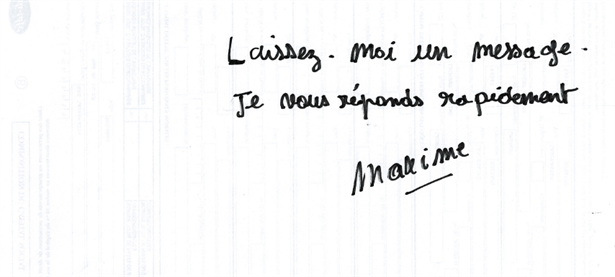 Laissez-moi un message.
Je vous réponds rapidement
Maxime